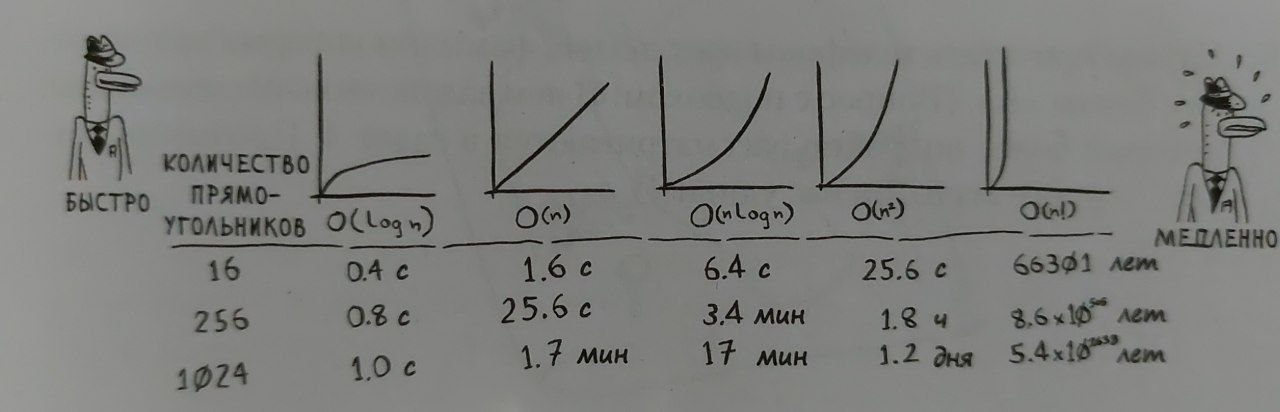 БЫСТРО
КОЛИЧЕСТВО
ПРЯМО-
УГОЛЬНИКОВ
O(log n) O(n) O(n log n) O(n²) O(n!)
МЕДЛЕННО
16 0.4 с 1.6 с 6.4 с 25.6 с 66301 лет
256 0.8 с 25.6 с 3.4 мин 1.8 ч 8.6×10⁵⁰⁵ лет
1024 1.0 с 1.7 мин 17 мин 1.2 дня 5.4×10²⁶³⁸ лет